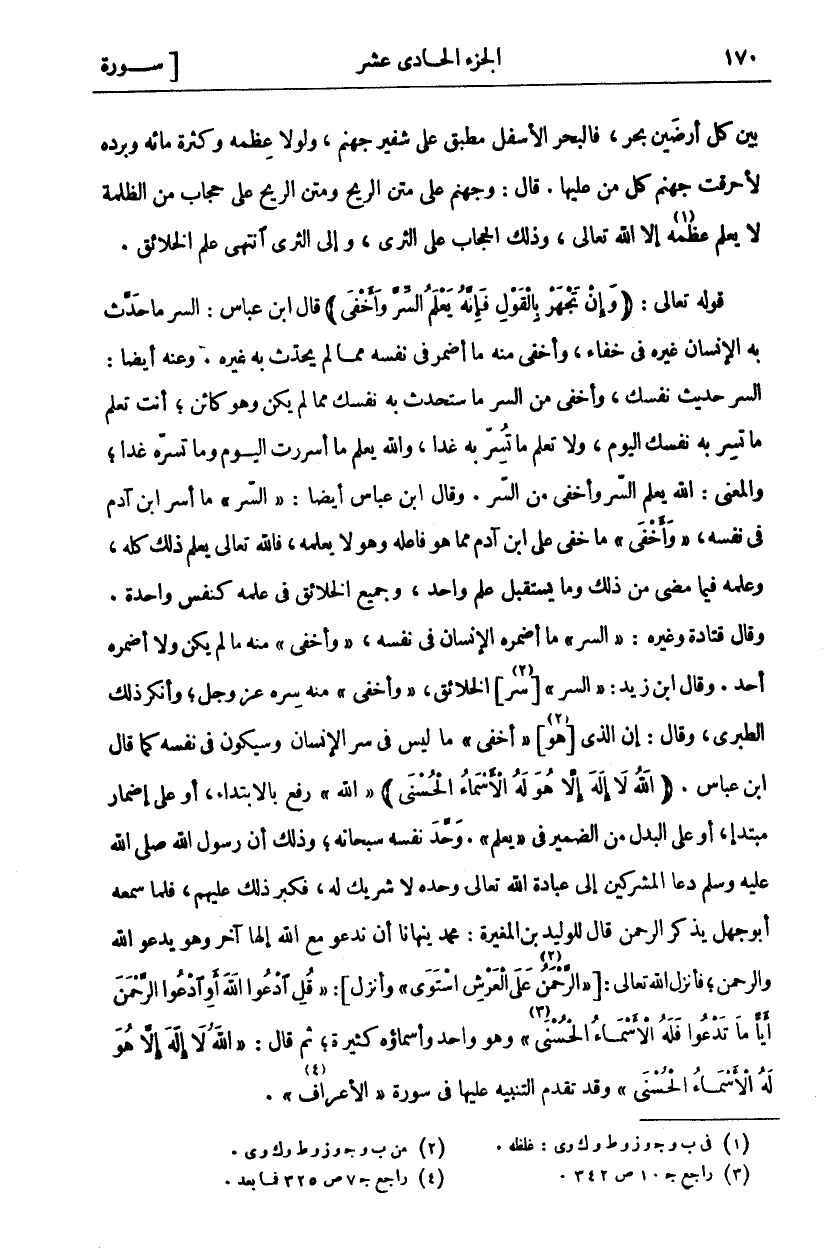 ١٧٠ الجزء الحادى عشر [ سورة
بين كل أرضَين بحر ، فالبحر الأسفل مطبق على شفير جهنم ، ولولا عِظمه وكثرة مائه وبرده
لأحرقت جهنم كل من عليها . قال : وجهنم على متن الريح ومتن الريح على حجاب من الظلمة
لا يعلم عظمه (١) إلا الله تعالى ، وذلك الحجاب على الثرى ، و إلى الثرى آنتهى علم الخلائق .
قوله تعالى : ﴿ وَإِنْ تَجْهَرْ بِالْقَوْلِ فَإِنَّهُ يَعْلَمُ السِّرَّ وَأَخْفَى ﴾ قال ابن عباس : السر ما حَدّث
به الإنسان غيره فى خفاء ، وأخفى منه ما أضمر فى نفسه ممـا لم يحدّث به غيره . وعنه أيضا :
السر حديث نفسك ، وأخفى من السر ما ستحدث به نفسك مما لم يكن وهو كائن ؛ أنت تعلم
ما تسِر به نفسك اليوم ، ولا تعلم ما تُسِرّ به غدا ، والله يعلم ما أسررت اليـوم وما تسرّه غدا ؛
والمعنى : الله يعلم السّر وأخفى من السّر . وقال ابن عباس أيضا : « السّر » ما أسر ابن آدم
فى نفسه ، « وَأَخْفَى » ما خفى على ابن آدم مما هو فاعله وهو لا يعلمه ، فالله تعالى يعلم ذلك كله ،
وعلمه فيما مضى من ذلك وما يستقبل علم واحد ، وجميع الخلائق فى علمه كنفس واحدة .
وقال قتادة وغيره : « السر » ما أضمره الإنسان فى نفسه ، « وأخفى » منه ما لم يكن ولا أضمره
أحد . وقال ابن زيد: « السر » [سر] (٢) الخلائق ، « وأخفى » منه سِره عز وجل ؛ وأنكر ذلك
الطبرى ، وقال : إن الذى [هو] (٢) « أخفى » ما ليس فى سر الإنسان وسيكون فى نفسه كما قال
ابن عباس . ﴿ اللهُ لَا إِلَهَ إِلَّا هُوَ لَهُ الْأَسْمَاءُ الْحُسْنَى ﴾ « الله » رفع بالابتداء ، أو على إضمار
مبتدإ ، أو على البدل من الضمير فى « يعلم » . وَحَّدَ نفسه سبحانه ؛ وذلك أن رسول الله صلى الله
عليه وسلم دعا المشركين إلى عبادة الله تعالى وحده لا شريك له ، فكبر ذلك عليهم ، فلما سمعه
أبو جهل يذكر الرحمن قال للوليد بن المغيرة : محمد ينهانا أن ندعو مع الله إلها آخر وهو يدعو الله
والرحمن ؛ فأنزل الله تعالى : [« الرَّحْمَنُ (٢) عَلَى الْعَرْشِ اسْتَوَى » وأنزل] : « قُلِ آدْعُوا اللهَ أَوِ آدْعُوا الرَّحْمَنَ
أَيًّا مَا تَدْعُوا فَلَهُ الْأَسْمَـاءُ الْحُسْنَى (٣) » وهو واحد وأسماؤه كثيرة ؛ ثم قال : « اللهُ لَا إِلَهَ إِلَّا هُوَ
لَهُ الْأَسْمَـاءُ الْحُسْنَى » وقد تقدم التنبيه عليها فى سورة « الأعراف (٤) » .
(١) فى ب و جـ و ز و ط و ك و ى : غلظه . (٢) من ب و جـ و ز و ط و ك و ى .
(٣) راجع جـ ١٠ ص ٣٤٢ . (٤) راجع جـ ٧ ص ٣٢٥ فـا بعد .